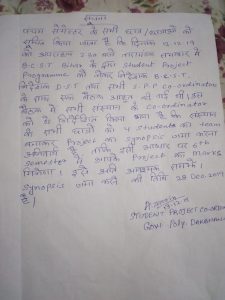 सूचना
पंचम सेमेस्टर के सभी छात्र/छात्राओं को
सूचित किया जाता है कि दिनांक 13.12.19
को अपराह्न 2:30 बजे तारामंडल सभागार में
B.C.S.T Bihar के द्वारा Student Project
Programme को लेकर निदेशक B.C.S.T.
निदेशक D.S.T तथा सभी S.P.P co-ordinator
के साथ एक बैठक आहूत की गई थी। इस
बैठक में सभी संस्थान के co-ordinator
को निर्देशित किया गया है कि संस्थान
के सभी छात्रों को 4 students का team
बनाकर Project का synopsis जमा करना
अनिवार्य है। इसी आधार पर 6th
Semester में आपके Project का marks
मिलेगा। इसे अति आवश्यक समझें।
Synopsis जमा करने की तिथि 28 Dec. 2019
है।
13.12.19
STUDENT PROJECT CO-ORDI
Govt. Poly.